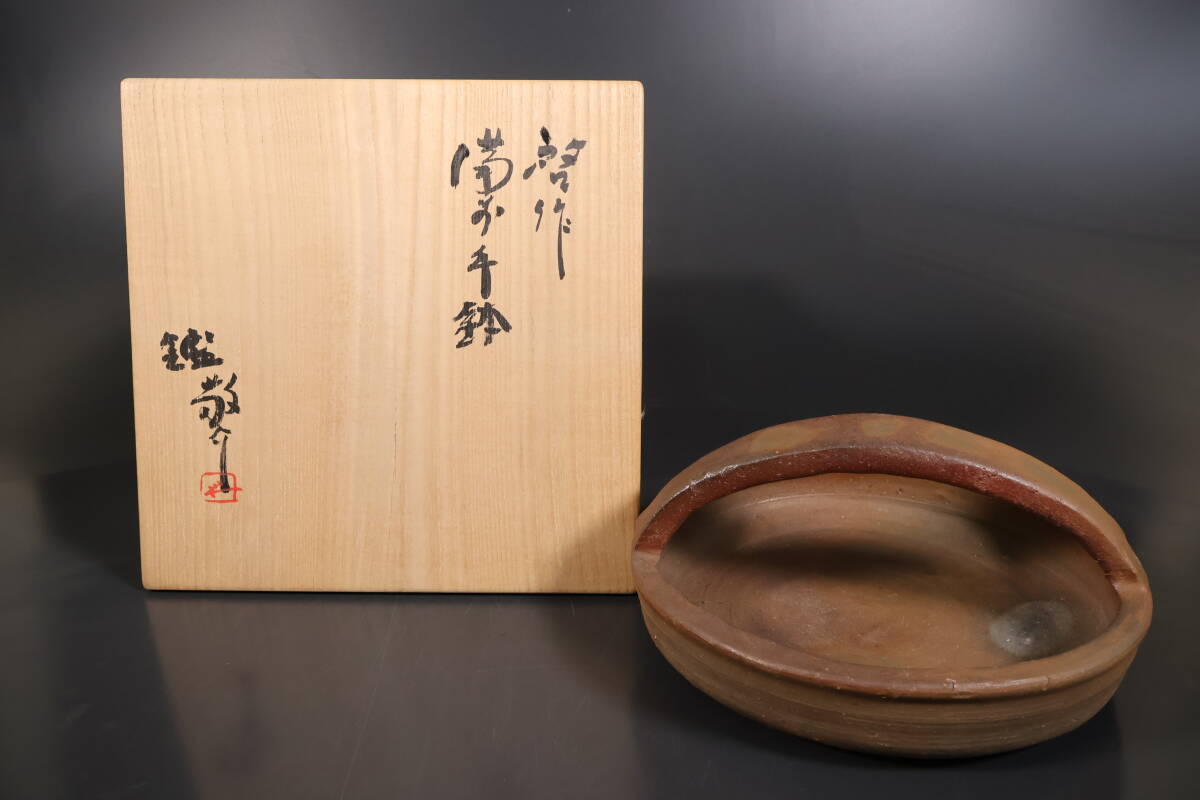 啓作
備前手鉢
鑑敬介